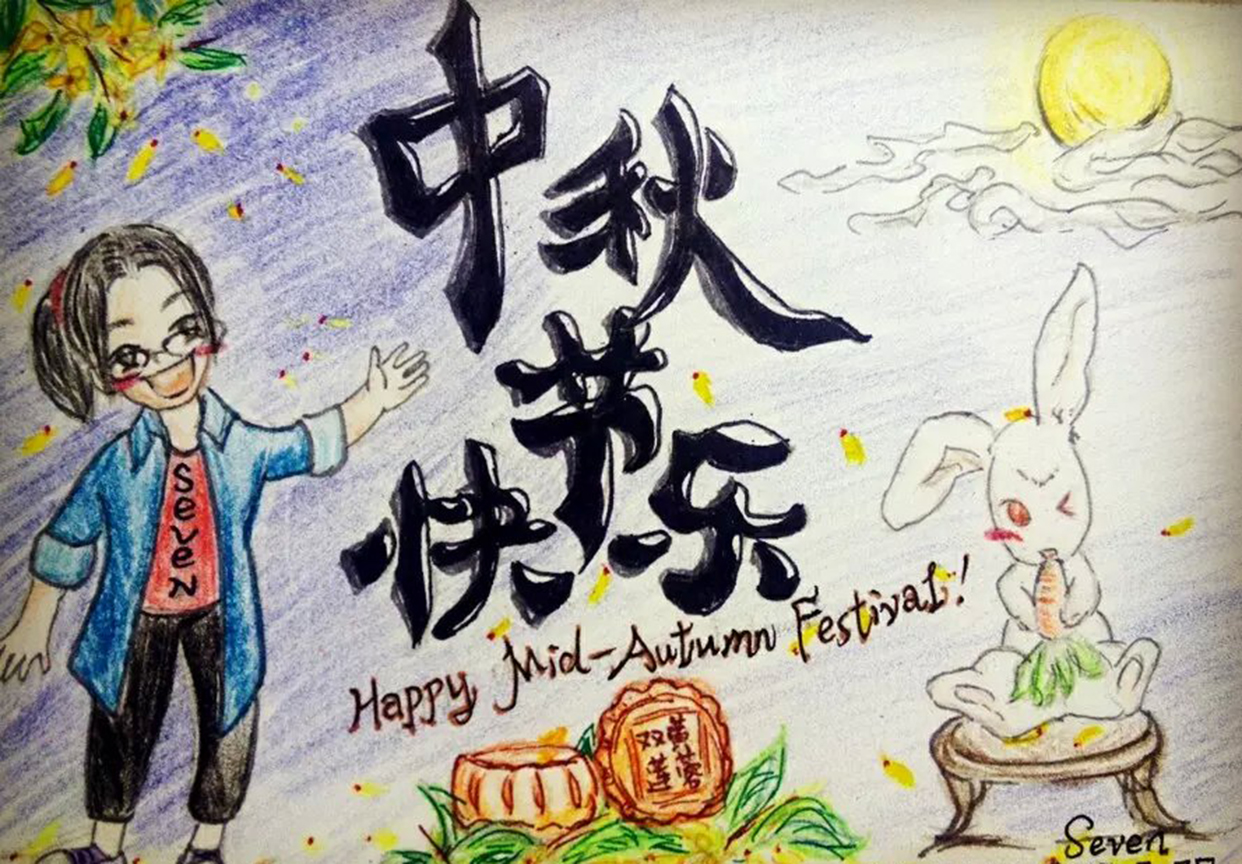 中秋
节
快乐
Happy Mid-Autumn Festival!
SeveN
双黄
莲蓉
Seven